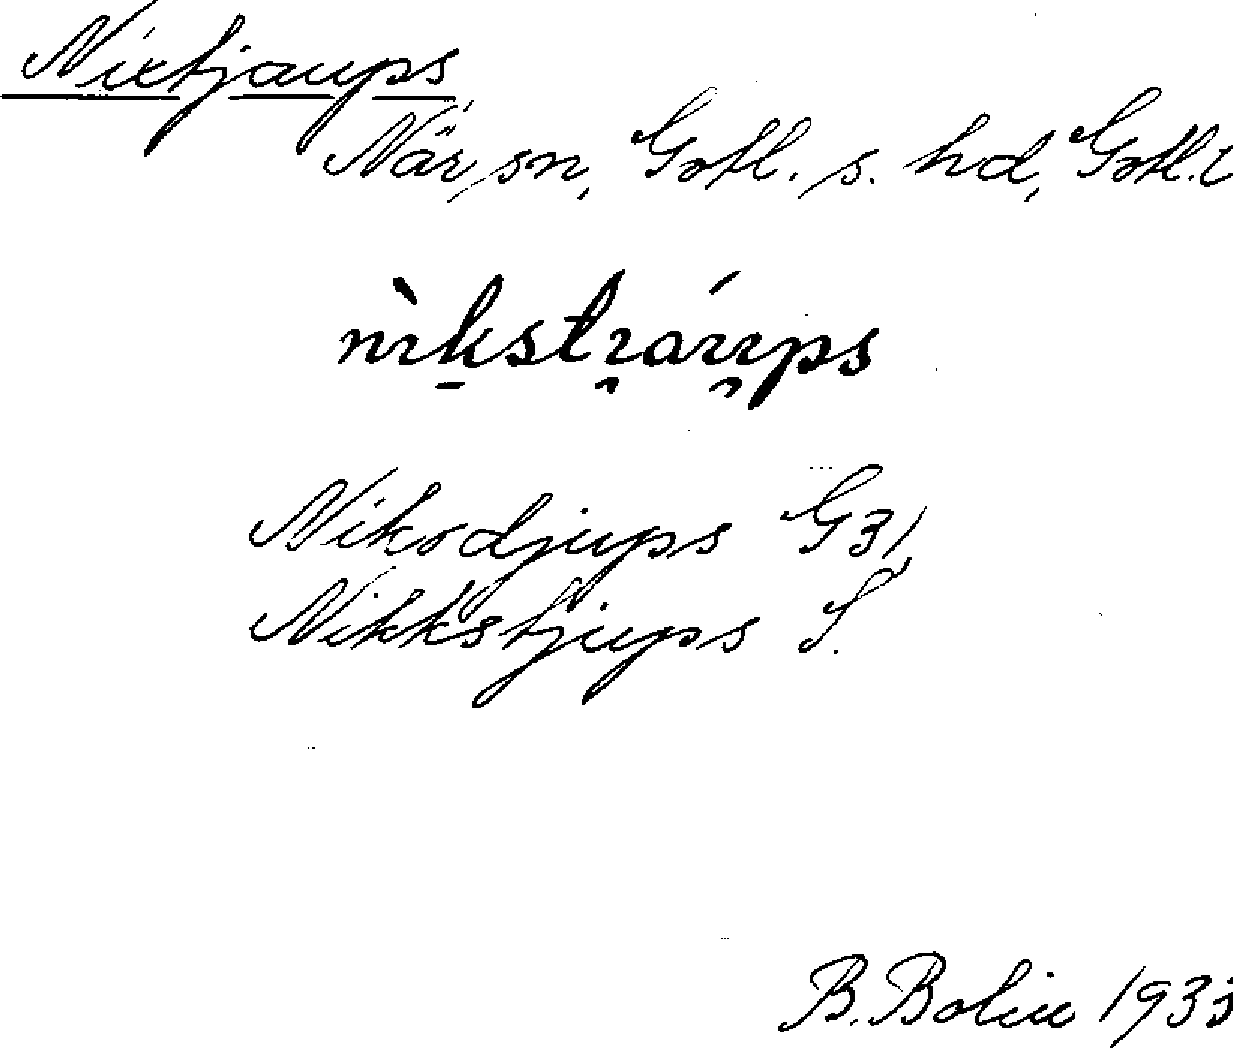 Nixtjaups
När, sn, Gotl. s. hd, Gotl. l
Niksdjups G31
Nikkstjups S.
B. Bolin 193